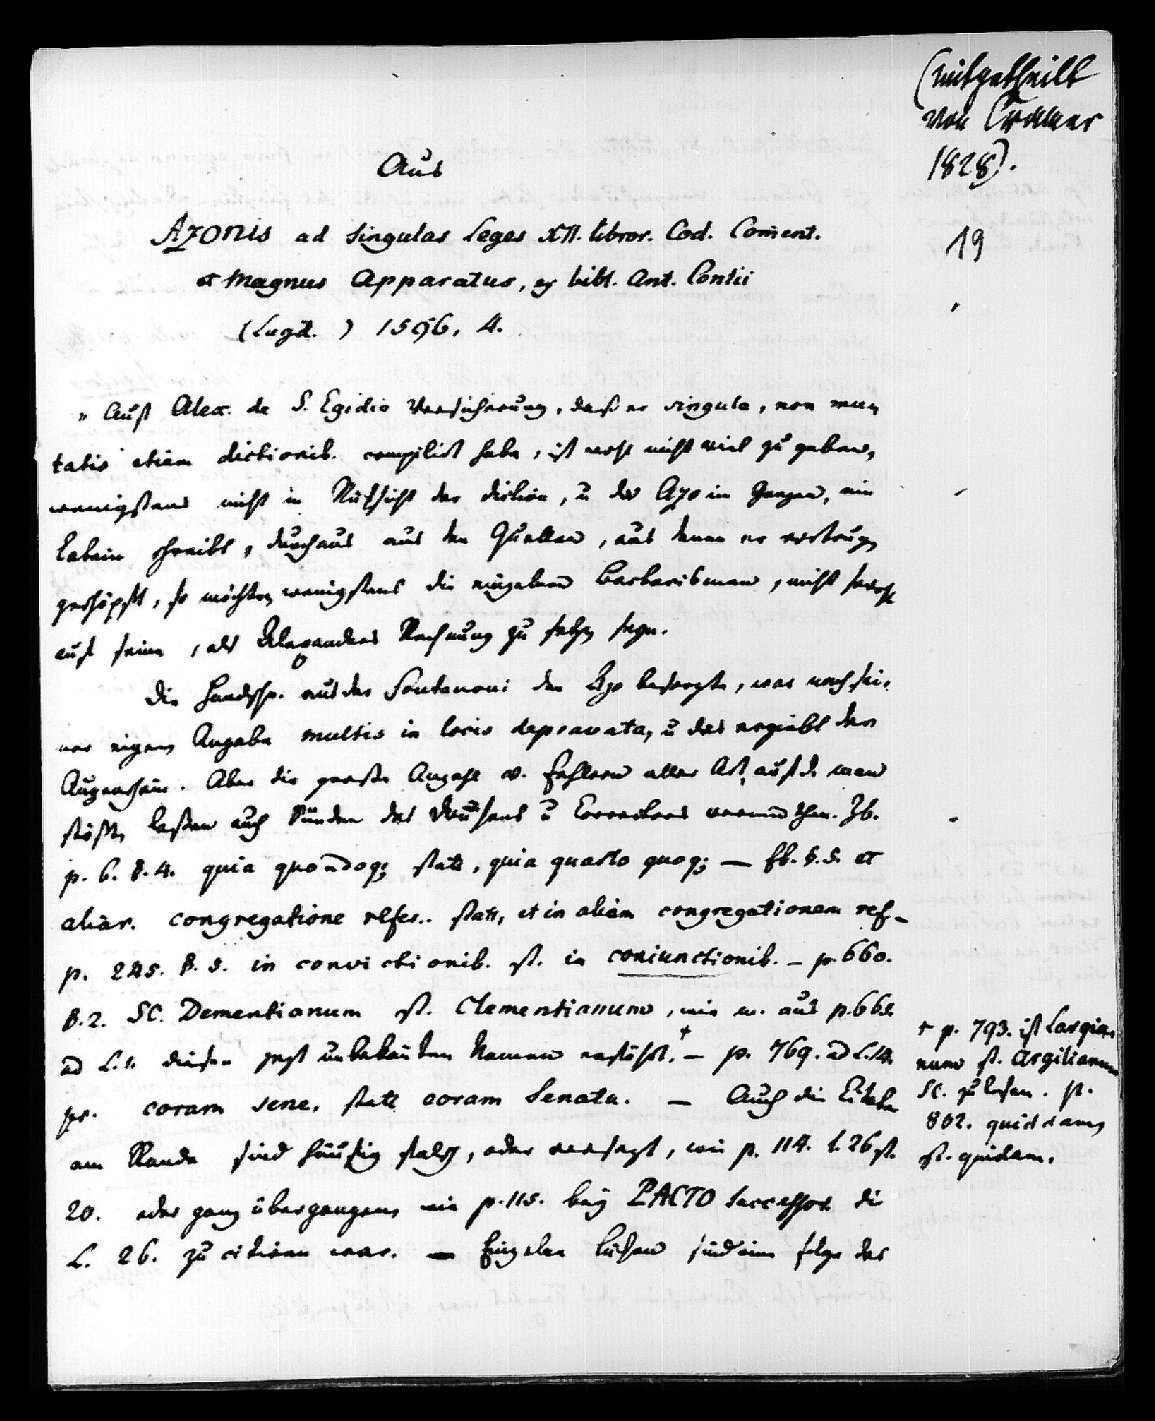 (mitgetheilt
von Cramer
1828).
19
Aus
Azonis ad singulas Leges XII. libror. Cod. Coment.
et magnus Apparatus, ex bibl. Ant. Contii
(Lugd. ) 1596. 4.
Auf Alex. de S. Egidio Versicherung, daß er singula, non mu
tatis etiam dictionib. compilirt habe, ist wohl nicht viel zu geben,
wenigstens nicht in Rücksicht der diction, u da Azo im Ganzen, ein
Latein schreibt, durchaus aus den Quellen, aus denen er vortrug,
geschöpft, so möchten wenigstens die einzelnen Barbarismen, nicht sowohl
auf seine, als Alexanders Rechnung zu setzen seyn.
Die Handschr. aus der Contanoni den Azo besorgte, war nach sei-
ner eignen Angabe multis in locis depravata, u das ergiebt der
Augenschein. Aber die große Anzahl v. Fehlern aller Art, auf d. man
stößt, laßen auch Sünden des Drucks u Correctors vermuthen. Zb.
p. 6. §. 4. quia quoadoq; statt, quia quarto quoq; — eb. §. 5. et
aliar. congregatione refer.. statt, et in aliam congregationem ref-
p. 245. §. 5. in convictionib. st. in coniunctionib. — p. 660.
§. 2. SC. Dementianum st. Clementianum, wie m. aus p. 665.
ad L. 1. diesen sonst unbekannten Namen erfährt. † — p. 769. ad L. 14.
pr. coram sene. statt coram Senatu. — Auch die Citate
am Rande sind häufig falsch, oder versetzt, wie p. 114. l. 26 st.
20. oder ganz übergangen wie p. 115. bey PACTO successor. die
L. 26. zu citiren war. — Einzelne Lücken sind eine Folge des
† p. 793. ist Largia-
num st. Argilianum
SC. zu lesen. p.
802. quiddam
st. quidam.